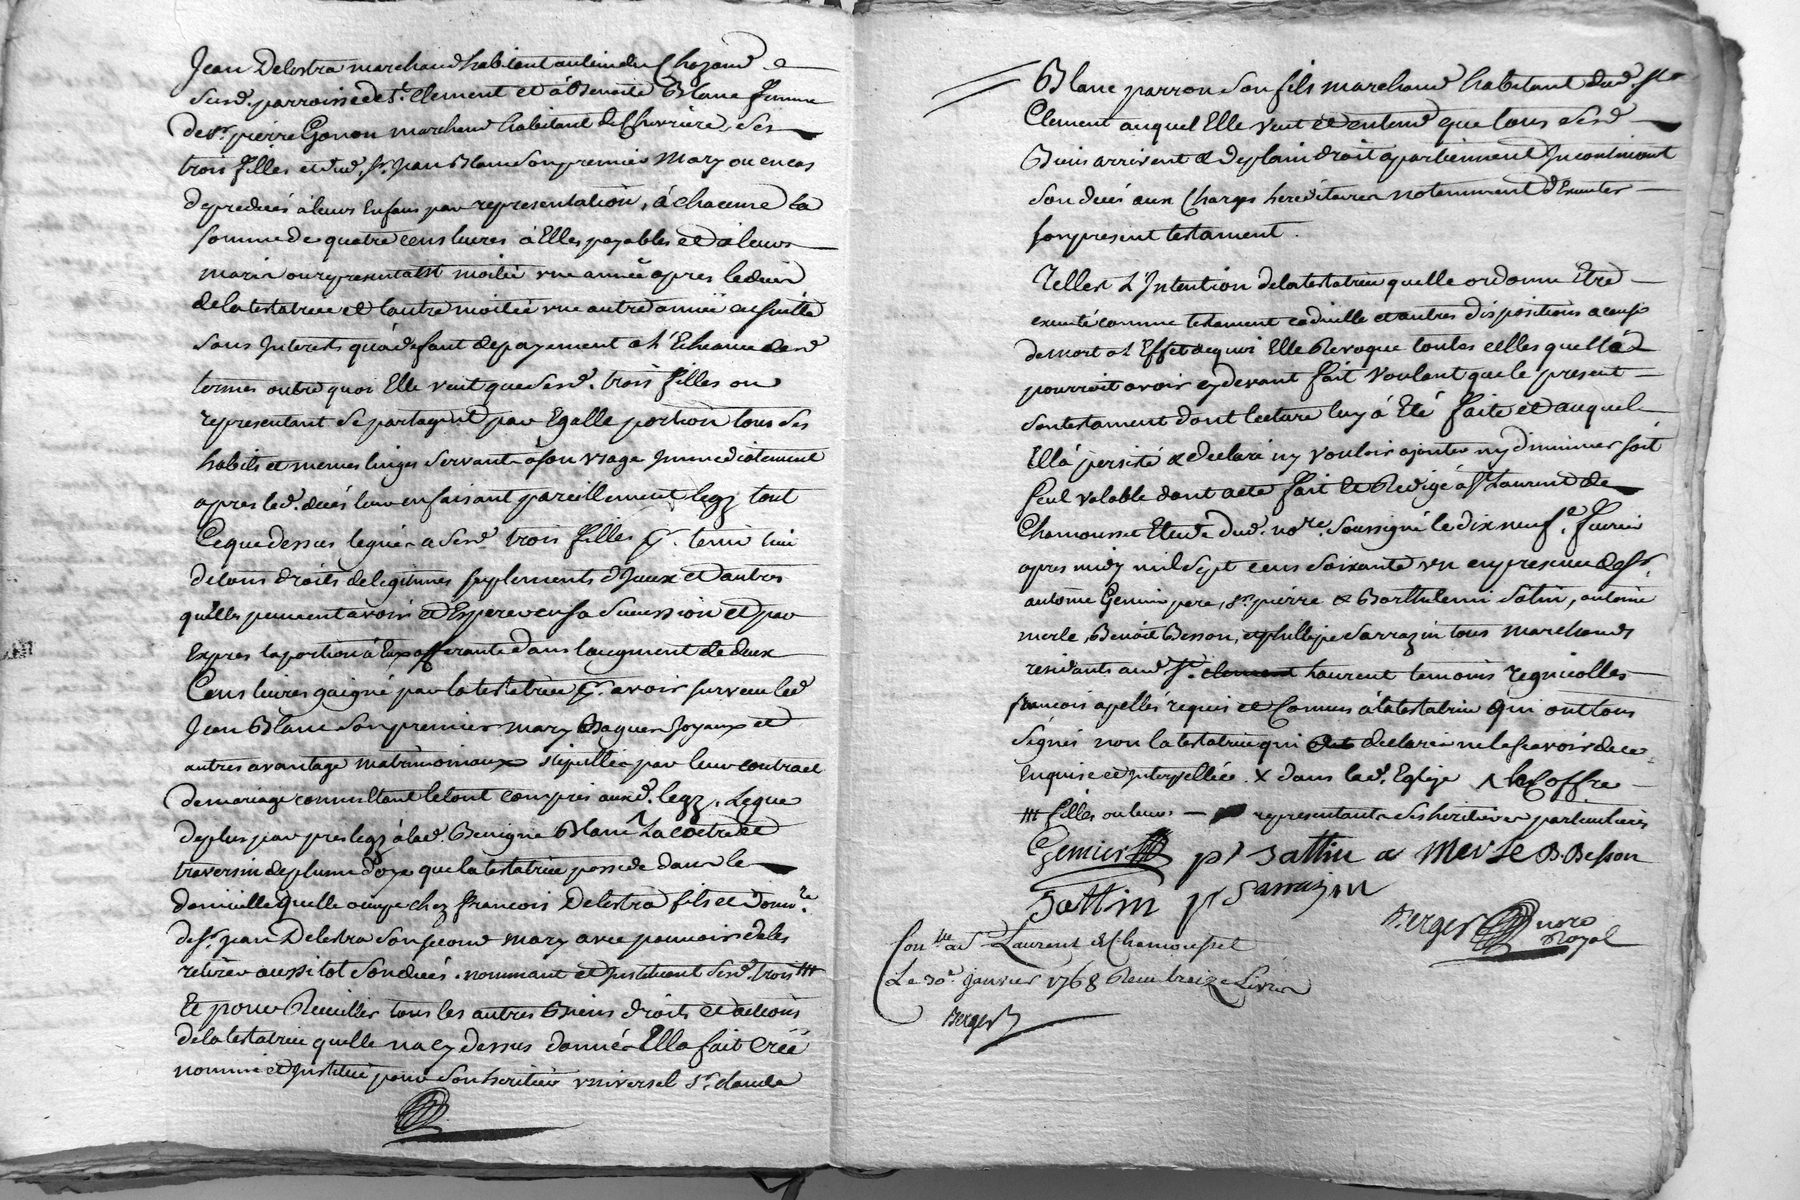 Jean Delestra marchand habitant au lieu du Chazaud
Susd. parroisse de St. Clement et à Benoite Blanc femme
de Sr. pierre Gonon marchand habitant de Chevrière, ses
trois filles et dud. Sr. Jean Blanc son premier Mary ou en cas
de predecés à leurs Enfans par representation, à chacune la
somme de quatre cens livres à Elles payables et à leurs
maris ou representant moitié une année apres le decés
de la testatrice et l'autre moitié une autre année ensuitte
sans Interets qu'à defaut de payement à l'Echeance desd
termes outre quoi Elle veut que sesd. trois filles ou
representant se partagent par Egalle portion tous ses
habits et memes linges servant à son Usage Immediatement
apres led. decés leur en faisant pareillement legz tout
Ce que dessus legué à sesd trois filles pr. tenir lieu
de tous droits de legitimes suplements d'Iceux et autres
qu'elles peuvent avoir et Esperer en sa Succession et par
Expres la portion à Eux afferante dans l'augment de deux
Cens livres gaigné par la testatrice pr. avoir survecu led
Jean Blanc son premier mary Bagues Joyaux et
autres avantage matrimoniaux stipullés par leur contract
de mariage consultant le tout compris auxd. legz. Legue
de plus par prelegz à lad. Benigne Blanc La coetre et
traversin de plume d'oye que la testatrice possede dans le
domicille qu'elle occupe chez francois Delestra fils et donre.
de Sr. jean Delestra son second mary avec pouvoir de les
retirer aussitot son decés. nommant et Instituant sesd. trois ##
Et pour Recuillir tous les autres Biens droits et actions
de la testatrice quelle na cy dessus donnés Ella fait Créé
nommé et Institué pour son heritier Universel Sr. claude
Blanc parron son fils marchand habitant dud. St.
Clement auquel Elle veut et entend que tous sesd
Biens arrivent & de plain droit apartiennent Incontinant
son decés aux Charges hereditaires notamment d'Exécuter
son present testament.
Telle est L'Intention de la testatrice quelle ordonne Etre
executé comme testament codicille et autres dispositions a cause
de mort a l'Effet de quoi Elle Revoque toutes celles quelle
pourroit avoir cy devant fait Voulant que le present
son testament dont lecture luy à Eté faite et auquel
Ella persisté & declaré n'y vouloir ajouter ny diminuer soit
seul valable dont acte fait et Redigé à St Laurent de
Chamousset Etude dud. nore. soussigné le dix neufe. fevrier
apres midy mil Sept cens soixante un en presence de Sr.
antoine Gemier pere, Sr. pierre & Barthelemi Satin, antoine
merle, Benoit Besson, et phillipe Sarrazin tous marchands
residants aud St. clement Laurent temoins regnicolles
francois apellés requis et Connus à la testatrice qui ont tous
signés non la testatrice qui declaré ne le scavoir de ce
Enquise et Interpellée. X dans lad. Eglise ^ la Coffre
## filles ou leurs — representants ses heritiers particuliers
Gemier pr Sattin a Merle B Besson
Sattin pr Sarrazin
Berger nore
Royal
Conlle. à St Laurent de Chamousset
Le 30e. janvier 1768 Reçu treize Livres
Berger